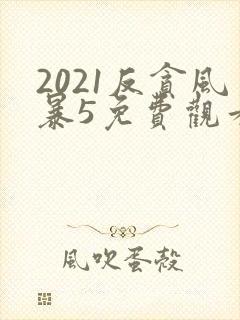 2021反貪風
暴5免費觀看
風吹蛋殼